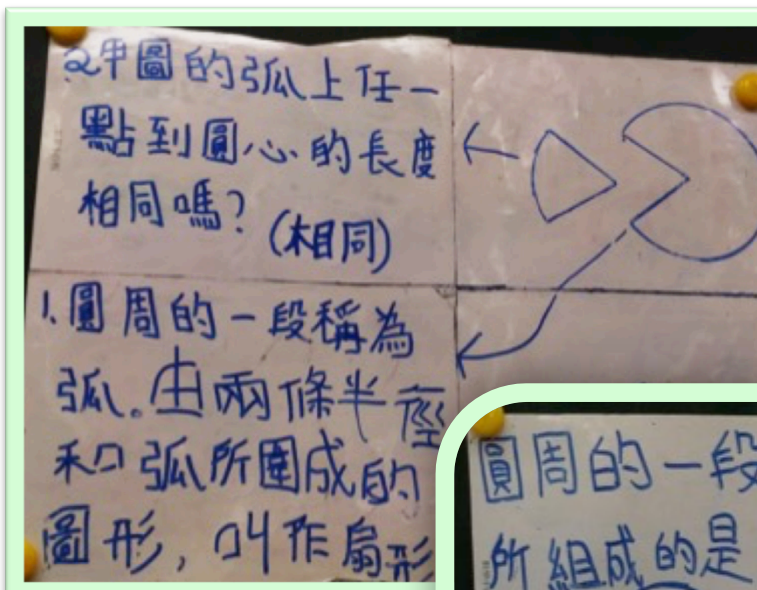 2甲圖的弧上任一
點到圓心的長度
相同嗎?(相同)
1.圓周的一段稱為
弧。由兩條半徑
和弧所圍成的
圖形,叫作扇形
圓周的一段
所組成的是